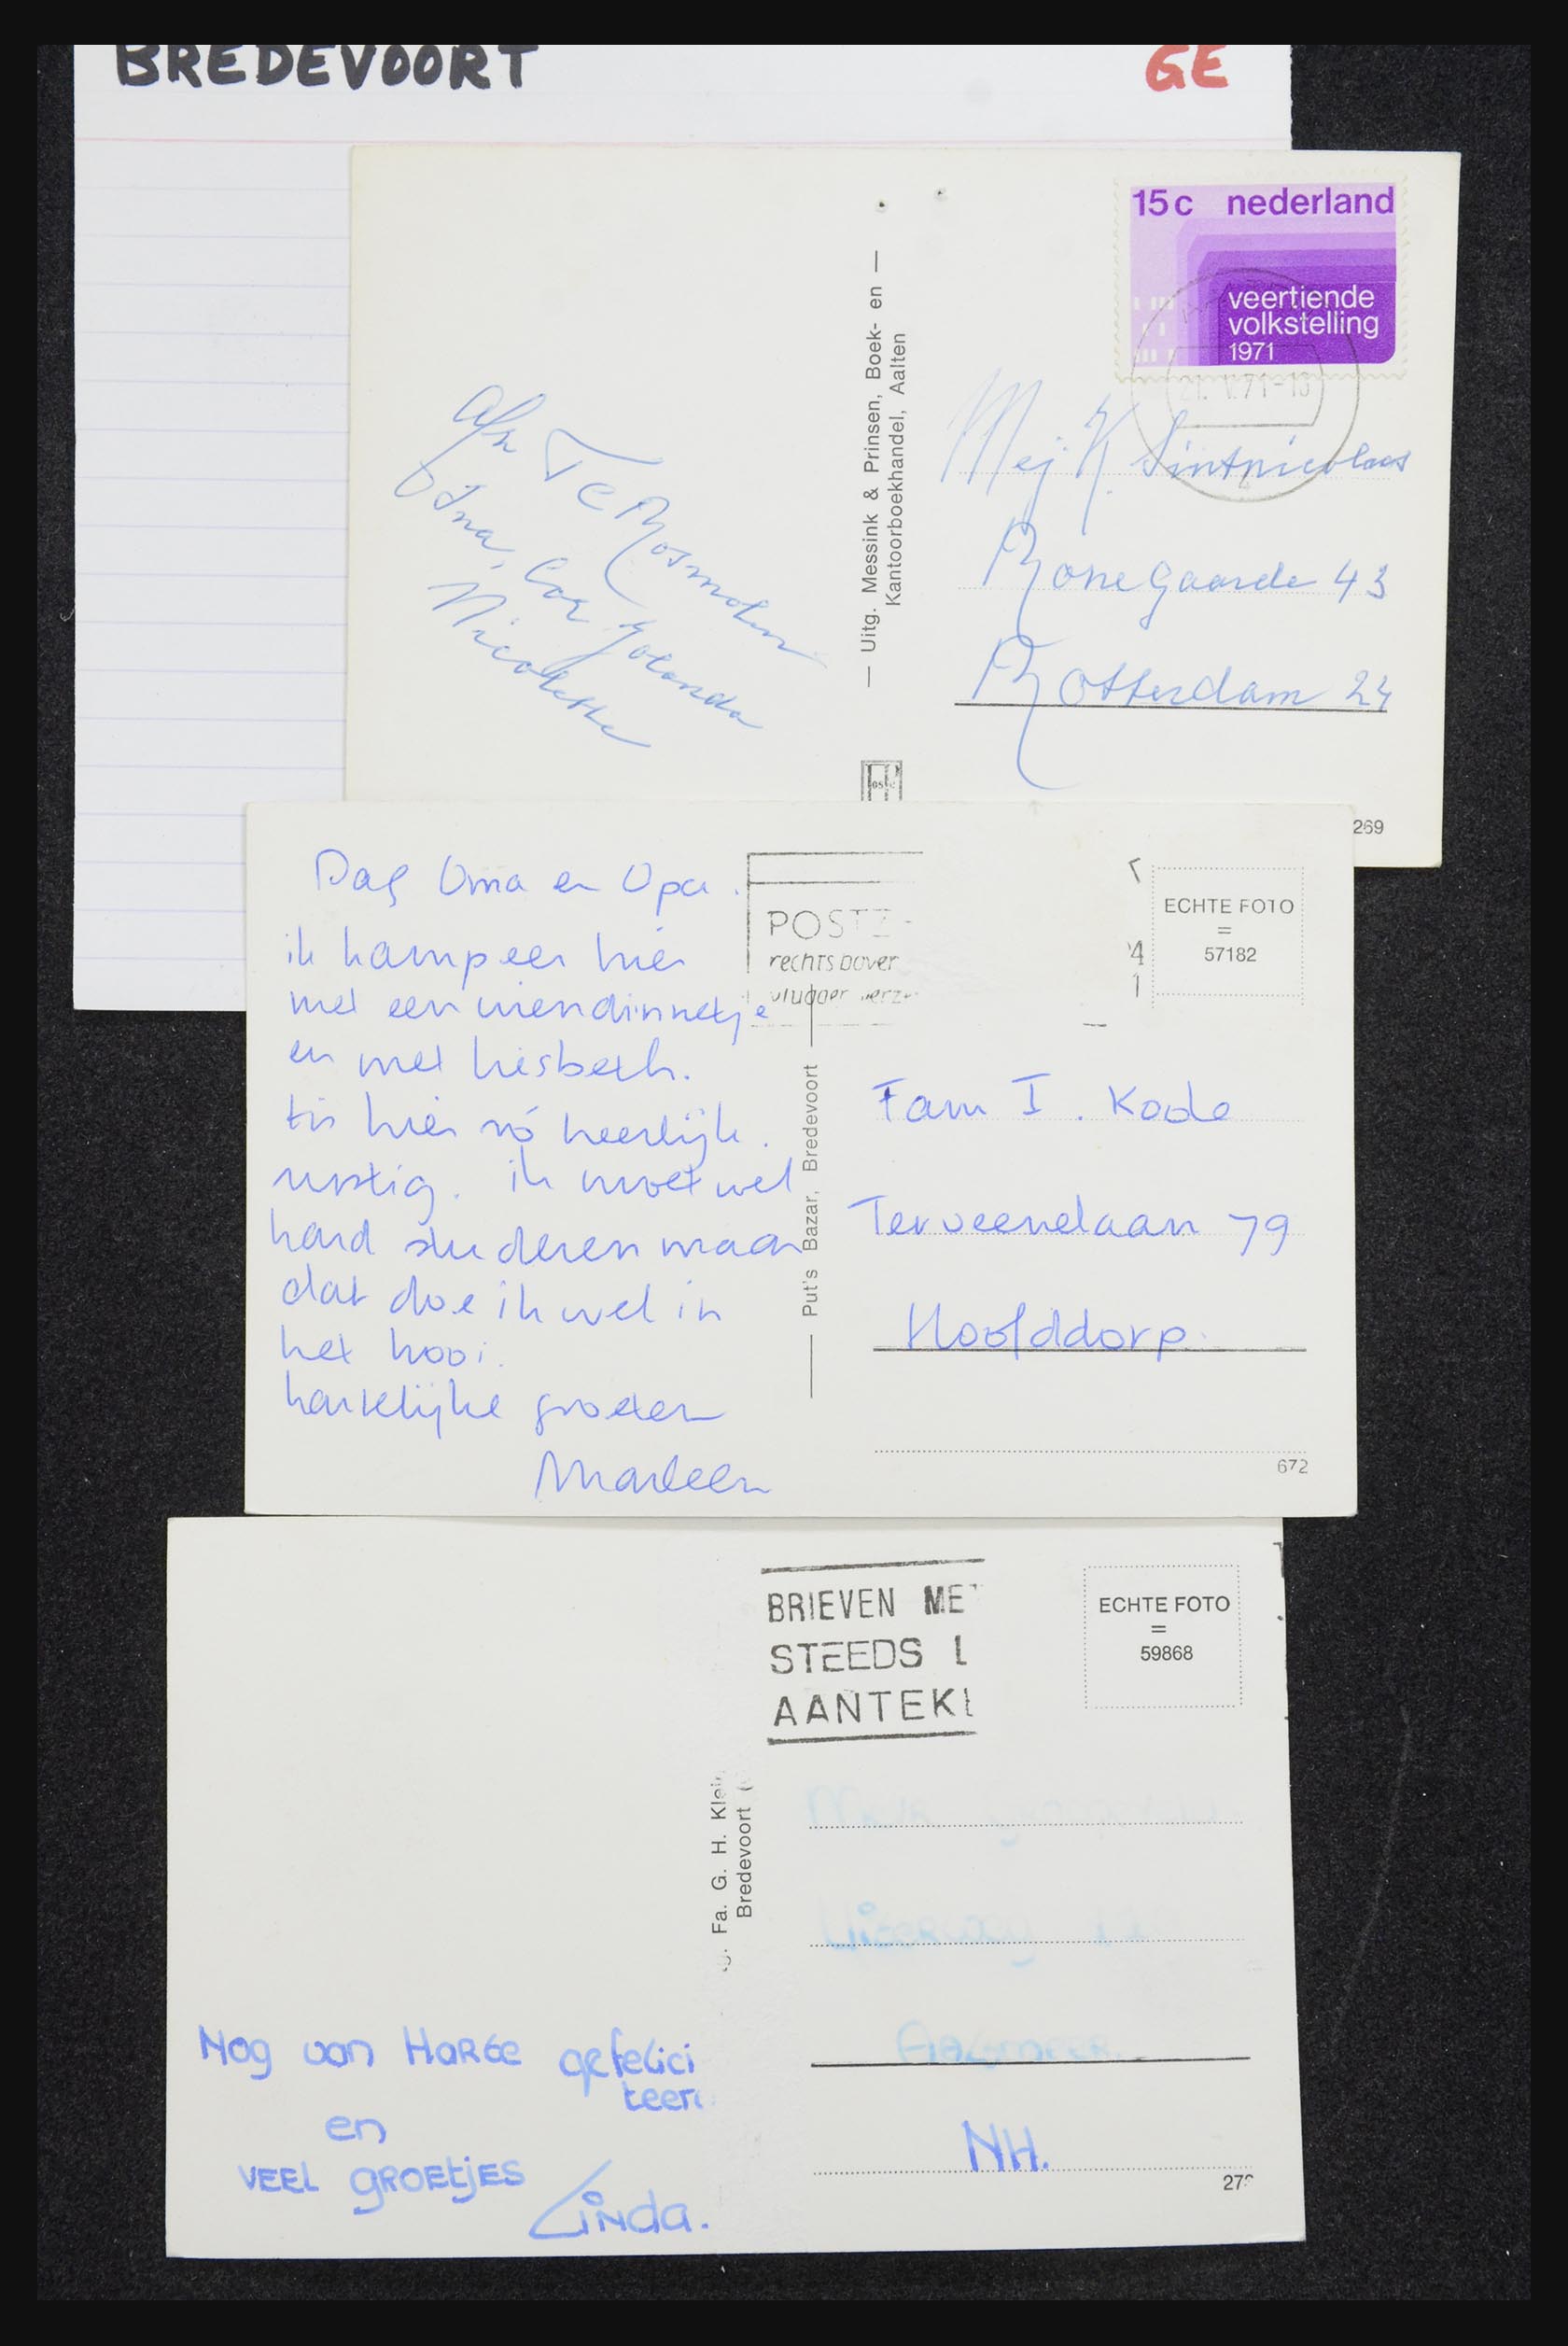 BREDEVOORT GE
15 c nederland
veertiende
volkstelling
1971
21. V.71-18
Afz Te
Ina, Cor Yolanda
Nicolette
— Uitg. Messink & Prinsen, Boek- en —
Kantoorboekhandel, Aalten
Mej. K. Sintnicolaas
Rone Gaarde 43
Rotterdam 24
269
Dag Oma en Opa.
ik kampeer hier
met een vriendinnetje
en met Liesbeth.
tis hier zó heerlijk.
rustig. ik moet wel
hard studeren maar
dat doe ik wel in
het hooi.
hartelijke groeten
Marleen
POSTZ
rechts boven
vlugger verz
4
1
ECHTE FOTO
=
57182
— Put's Bazar, Bredevoort —
Fam I. Kode
Terveenelaan 79
Hoofddorp.
672
BRIEVEN ME
STEEDS L
AANTEK
ECHTE FOTO
=
59868
Fa. G. H. Klein
Bredevoort (
Aalsmeer.
NH.
27
Nog van Harte gefelici
teer
en
veel groetjes
Linda.